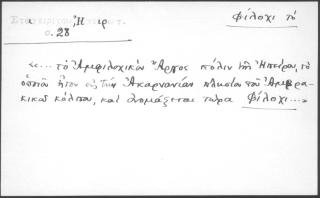 Φίλοχι τό
σ. 28
«... τὸ Ἀμφιλοχικὸν Ἄργος πόλιν τῆς Ἠπείρου, τὸ
ὁποῖον ἦτον εἰς τὴν Ἀκαρνανίαν πλησίον τοῦ Ἀμβρα-
κικοῦ κόλπου, καὶ ὀνομάζεται τώρα Φίλοχι...»